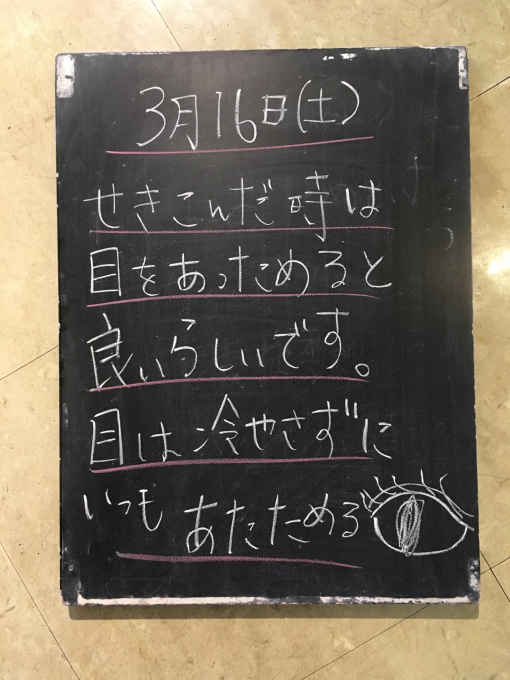 3月16日(土)
せきこんだ時は
目をあっためると
良いらしいです。
目は冷やさずに
いつも あたためる